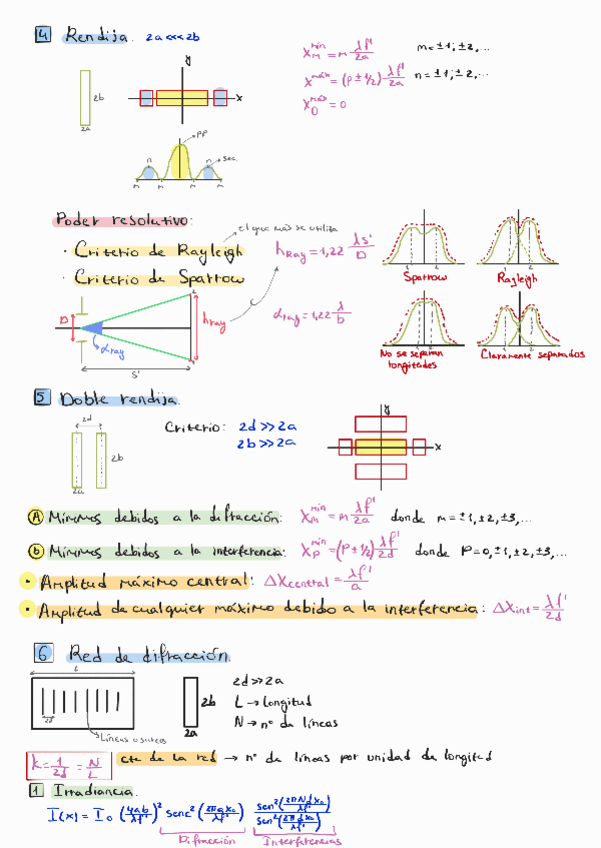 4 Rendija. 2a <<< 2b
X_m^mín = m λf'/2a m = ±1, ±2, ...
X^máx = (p ± 1/2) λf'/2a n = ±1, ±2, ...
X_0^máx = 0
2b
2a
y
x
PP
n
n
sec
m m m m
Poder resolutivo:
el que más se utiliza
· Criterio de Rayleigh
h_Ray = 1,22 λs'/D
· Criterio de Sparrow
1 2
Sparrow
1 2
Rayleigh
D
α_ray
h_ray
s'
α_ray = 1,22 λ/b
1 2
No se separan longitudes
1 2
Claramente separados
5 Doble rendija.
2d
2b
2a
Criterio: 2d >> 2a
2b >> 2a
y
x
A Mínimos debidos a la difracción: X_m^mín = m λf'/2a donde m = ±1, ±2, ±3, ...
b Mínimos debidos a la interferencia: X_p^mín = (p ± 1/2) λf'/2d donde P = 0, ±1, ±2, ±3, ...
· Amplitud máximo central: ΔX_central = λf'/a
· Amplitud de cualquier máximo debido a la interferencia: ΔX_int = λf'/2d
6 Red de difracción.
L
2d
Líneas o surcos
2b
2a
2d >> 2a
L → longitud
N → nº de líneas
k = 1/2d = N/L cte de la red → nº de líneas por unidad de longitud
1 Irradiancia.
I(x) = I_0 (4ab/λf')² senc² (2πax_c/λf') sen²(2πNdx_c/λf')/sen²(2πdx_c/λf')
Difracción Interferencias